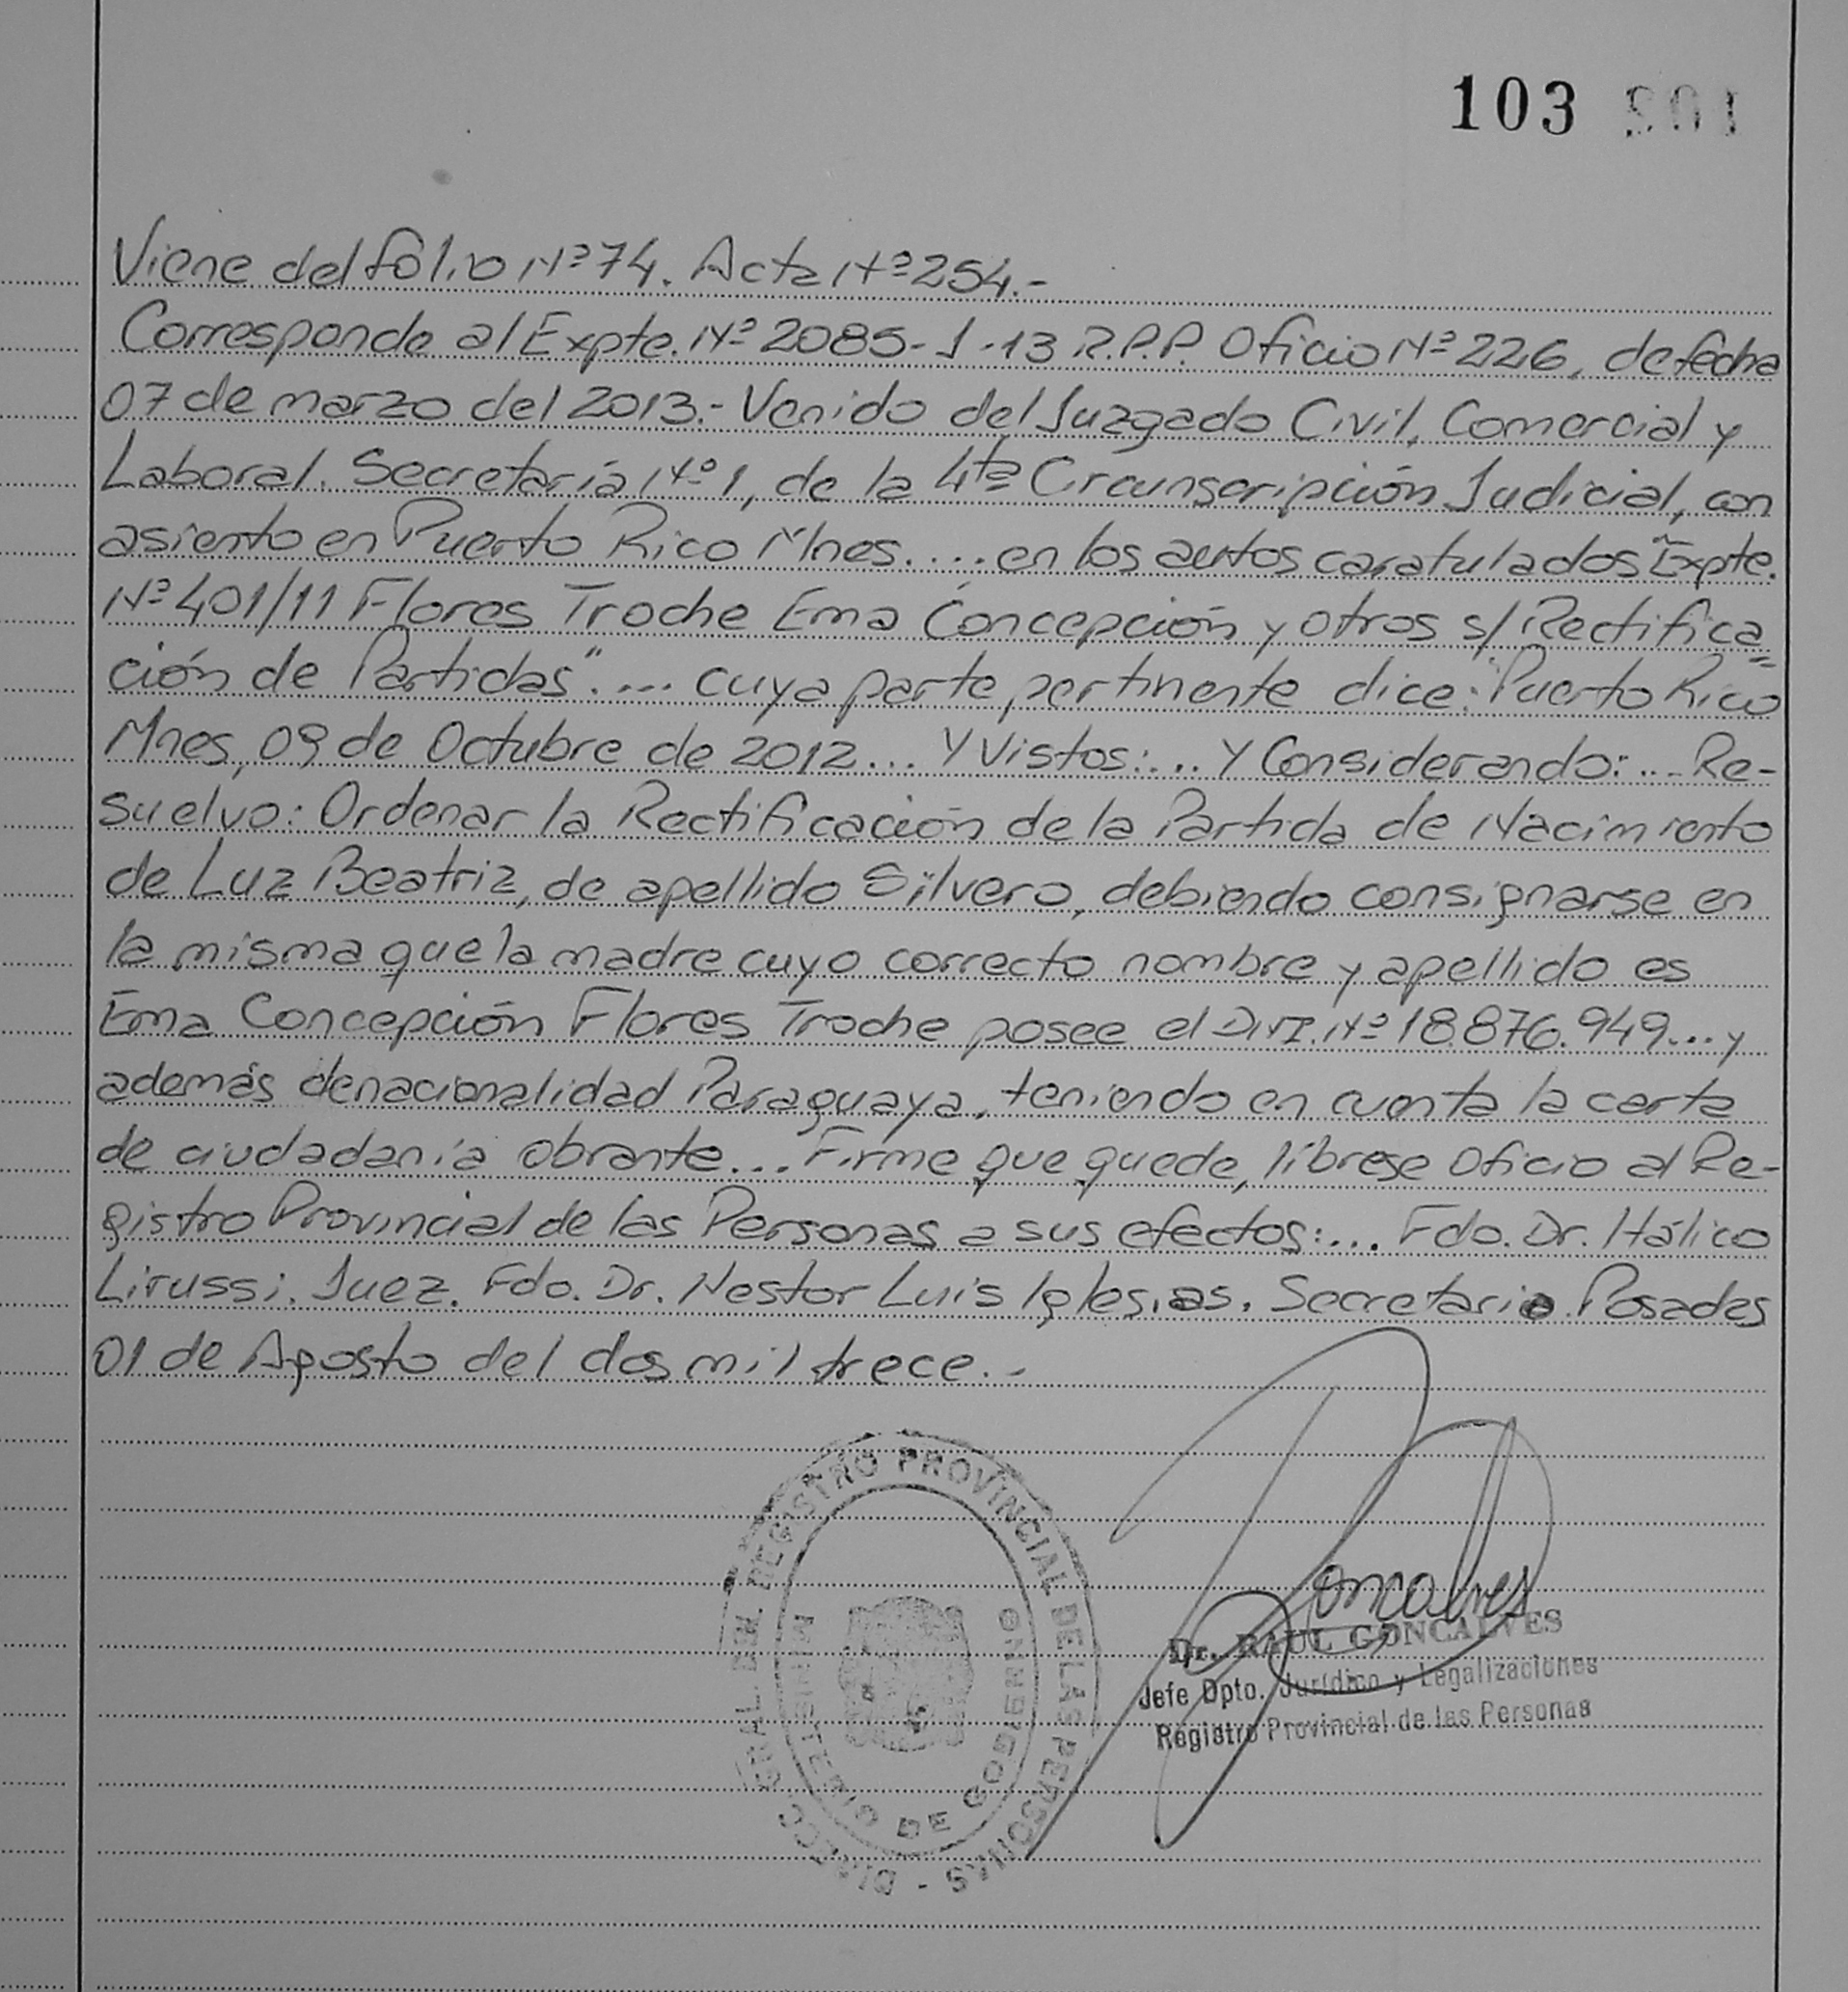 103
Viene del folio Nº 74. Acta Nº 254.-
Corresponde al Expte. Nº 2085-J-13 R.P.P. Oficio Nº 226, de fecha
07 de marzo del 2013.- Venido del Juzgado Civil, Comercial y
Laboral. Secretaría Nº 1, de la 4ta Circunscripción Judicial, con
asiento en Puerto Rico Mnes.... en los autos caratulados "Expte.
Nº 401/11 Flores Troche Ema Concepción y otros s/ Rectifica=
ción de Partidas".... cuya parte pertinente dice: "Puerto Rico
Mnes, 09 de Octubre de 2012... Y Vistos:... Y Considerando:... Re-
suelvo: Ordenar la Rectificación de la Partida de Nacimiento
de Luz Beatriz, de apellido Silvero, debiendo consignarse en
la misma que la madre cuyo correcto nombre y apellido es
Ema Concepción Flores Troche posee el D.N.I. Nº 18.876.949... y
además de nacionalidad Paraguaya, teniendo en cuenta la carta
de ciudadanía obrante... Firme que quede, líbrese Oficio al Re-
gistro Provincial de las Personas a sus efectos:... Fdo. Dr. Itálico
Lirussi. Juez. Fdo. Dr. Nestor Luis Iglesias. Secretario. Posadas
01 de Agosto del dos mil trece.-
DIRECC. GRAL. DEL REGISTRO PROVINCIAL DE LAS PERSONAS -
MINISTERIO DE GOBIERNO
Goncalves
Dr. RAUL GONCALVES
Jefe Dpto. Jurídico y Legalizaciones
Registro Provincial de las Personas